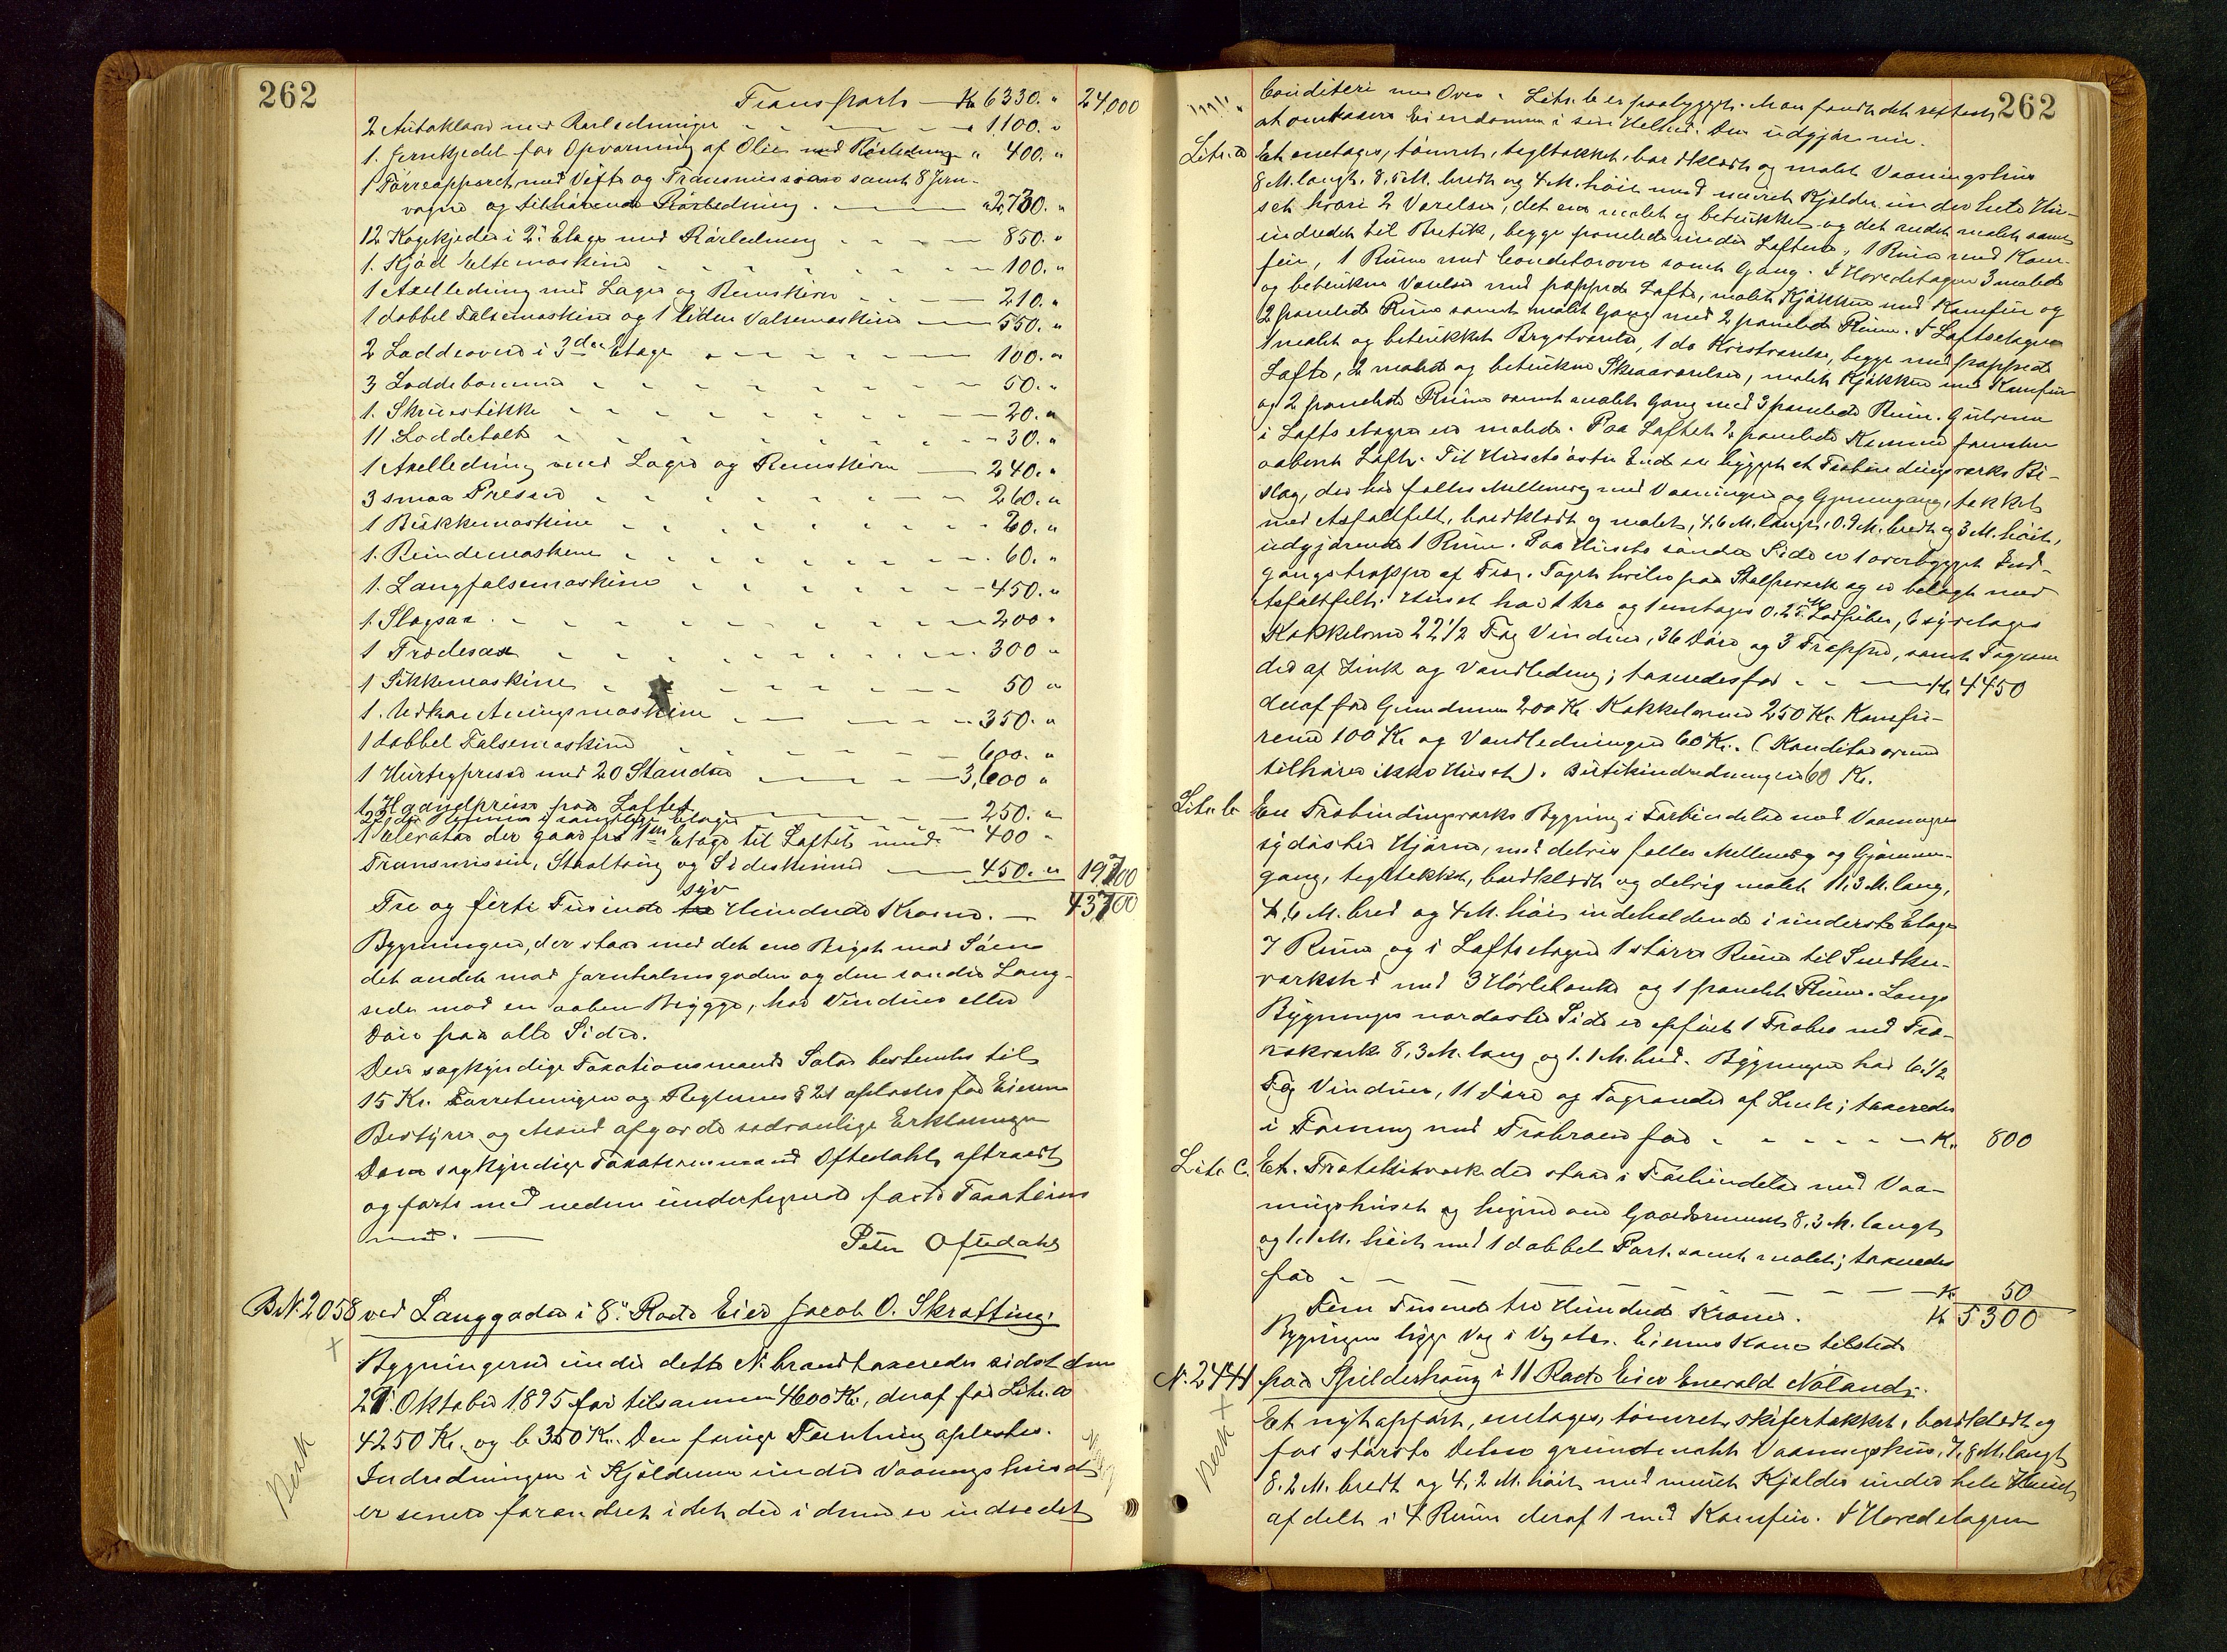 262
Transport — Kr 6330. " 24,000
2 Autoklaver med Rørledninger - - - - " 1,100. "
1. Jernkjedel for Opvarming af Olie med Rørledning " 400. "
1 Tørreapparat med Vifte og Transmission samt 8 Jern-
vogne og tilhørende Rørledning. — " 2,730. "
12 Kogekjedler i 2. Etage med Rørledning - - - 850. "
1. Kjød Eltemaskine - - - - 100. "
1 Axelledning med Lager og Remskiver - - - 210. "
1 dobbel Falsemaskine og 1 liden Valsemaskine — 550. "
2 Loddeovne i 3die Etage - - - - 100. "
3 - - - - 50. "
1. Skruestikke - - - - 20. "
11 - - - - 30. "
1 Axelledning med Lager og Remskiver — 240. "
3 smaa Presser - - - - 260. "
1 Bukkemaskine - - - - 20. "
1. - - - - 60. "
1. Langfalsemaskine - - - - 450. "
1. Slagsax - - - - 200 "
1 - - - - 300 "
1 Sikkemaskine - - - - 50 "
1. - - - - 350. "
1 dobbel Falsemaskine - - - - 600. "
1 Hurtigpresse med 20 Standser - - - 3,600 "
1 Haandpresse paa Loftet — 250. "
1 Elevator der gaar fra 1ste Etage til Loftet med 400 "
Transmission, Staaltoug og Sideskinner — 450. " 19,700
Tre og førti Tusinde syv Hundrede Kroner. — 43700
Bygningen, der staar med det ene Brygst mod Søen
det andet mod Jorenholmsgaden og den søndre Lang-
side mod en aaben Brygge, har Vinduer eller
Døre paa alle Sider.
Den sagkyndige Taxationsmands Salær bestemtes til
15 Kr. Forretningen og Reglernes § 21 oplæstes for Eierens
Bestyrer og Mand afgav de sedvanlige Erklæringer
Den sagkyndige Taxationsmand Oftedahl aftraadte
og forts. med neden undertegnede faste Taxations
mænd. — Peter Oftedahl
B.N. 2058 ved Langgaden i 8. Rode Eier Jacob O. Skrætting.
Bygningerne under dette No. brandtaxeredes sidst den
21. Oktober 1895 for tilsammen 4600 Kr., deraf for Litr. a
4250 Kr. og b 350 Kr. Den forrige Forretning oplæstes.
Indredningen i Kjelderen under Vaaningshuset
er senere forandret idet der i denne er indredet
262
Conditori med Ovn. Litr. b er paabygget. Man fandt det rettest
at omtaxere Eiendommen i sin Helhed. Den udgjør nu.
Litr. a Et enetages, tømret, tegltækket, bordklædt og malet Vaaningshus
8 M. langt, 8,5 M. bredt og 4 M. høit med muret Kjelder under hele Hu-
set hvori 2 Værelser, det ene malet og betrukket og det andet malet samt
indredet til Butik, begge panelede under Loftene, 1 Rum med Kom-
fur, 1 Rum med Conditorovn samt Gang. I Hovedetagen 3 malede
og betrukne Værelser med pappede Lofte, malet Kjøkken med Komfur og
2 panelede Rum samt malet Gang med 2 panelede Rum. I Loftsetagen
1 malet og betrukket Brystværelse, 1 do Kvistværelse, begge med pappede
Lofte, 2 malede og betrukne Skraaværelser, malet Kjøkken med Komfur
og 2 panelede Rum samt malet Gang med 3 panelede Rum. Gulvene
i Loftsetagen er malede. Paa Loftet 2 panelede Kammer foruden
aabent Loft. Til Husets østre Ende er bygget et Træbindingsverks Bi-
slag, der har fælles Mellemvæg med Vaaningen og Gjennemgang, takket
med Asfaltfilt, bordklædt og malet, 4,6 M. langt, 0.9 M. bredt og 3 M. høit,
udgjørende 1 Rum. Paa Husets søndre Side er 1 overbygget Ind-
gangstrappe af Træ. Taget hviler paa Stolpeverk og er belagt med
Asfaltfilt. Huset har 1 tre og 1 enetages 0.25 M. Ladpiber, 6 syvetages
Kakkelovne 22 1/2 Fag Vinduer, 36 Døre og 3 Trapper, samt Tagren-
der af Zink og Vandledning; taxeredes for - - — Kr 4450
deraf for Grundmuren 200 Kr. Kakkelovnene 250 Kr. Komfu-
rerne 100 Kr og Vandledningen 60 Kr. (Konditorovnene
tilhører ikke Huset). Butikindredningen 60 Kr.
Litr. b En Træbindingsverks Bygning i Forbindelse med Vaaningens
sydøstre Hjørne, med delvis fælles Mellemvæg og Gjennem-
gang, tegltækket, bordklædt og delvis malet 11,3 M. lang,
4,6 M. bred og 4 M. høi indeholdende i underste Etage
7 Rum og i Loftsetagen 1 større Rum til Snedker-
værksted med 3 Høvlebænke og 1 panelet Rum. Langs
Bygningens nordøstre Side er opført 1 Træbro med Træ-
rækverk 8,3 M. lang og 1.1 M. bred. Bygningen har 6 1/2
Fag Vinduer, 11 Døre og Tagrender af Zink; taxeredes
i Forening med Træbroen for - - - - Kr. 800
Litr. C. Et Træstakitverk der staar i Forbindelse med Vaa-
ningshuset og Gaardsrummet 8,3 M. langt
og 1.1 M. høit med 1 dobbel Port samt malet; taxeredes
for - - - - Kr 50
Fem Tusinde tre Hundrede Kroner. Kr 5300
Bygningen ligger Væg i Væg etc. Eierens Kone tilstede
N. 2441 paa Spilderhaug i 11 Rode Eier Enevald Nøland.
Et nyt opført, enetages, tømret, skifertækket, bordklædt og
for største Delen grundmalet Vaaningshus, 7,8 M. langt
8.2 M. bredt og 4,2 M. høit med muret Kjelder under hele Huset
afdelt i 4 Rum deraf 1 med Komfur. I Hovedetagen